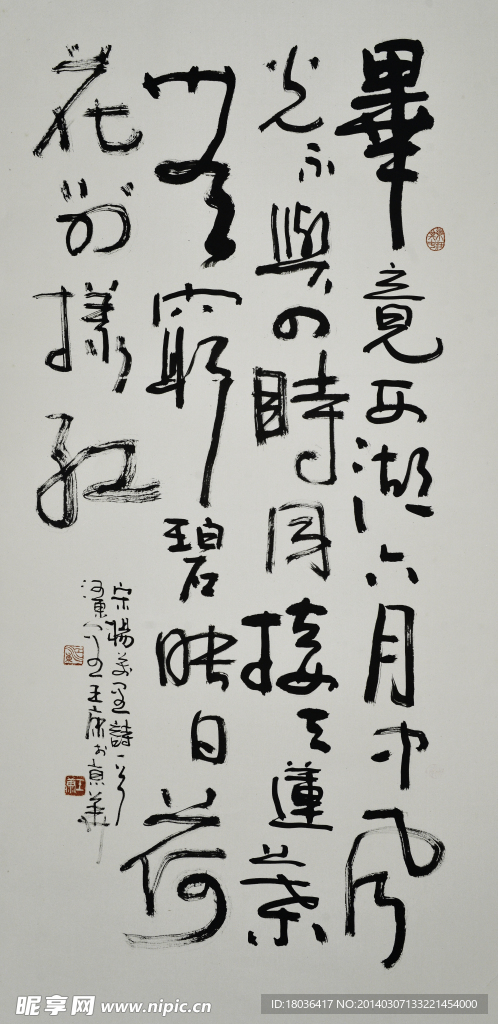 畢竟西湖六月中風
光不與四時同接天蓮葉
無窮碧映日荷
花別樣紅
宋楊萬里詩一首
河東 王 於京華
昵享网 www.nipic.cn
ID:18036417 NO:20140307133221454000